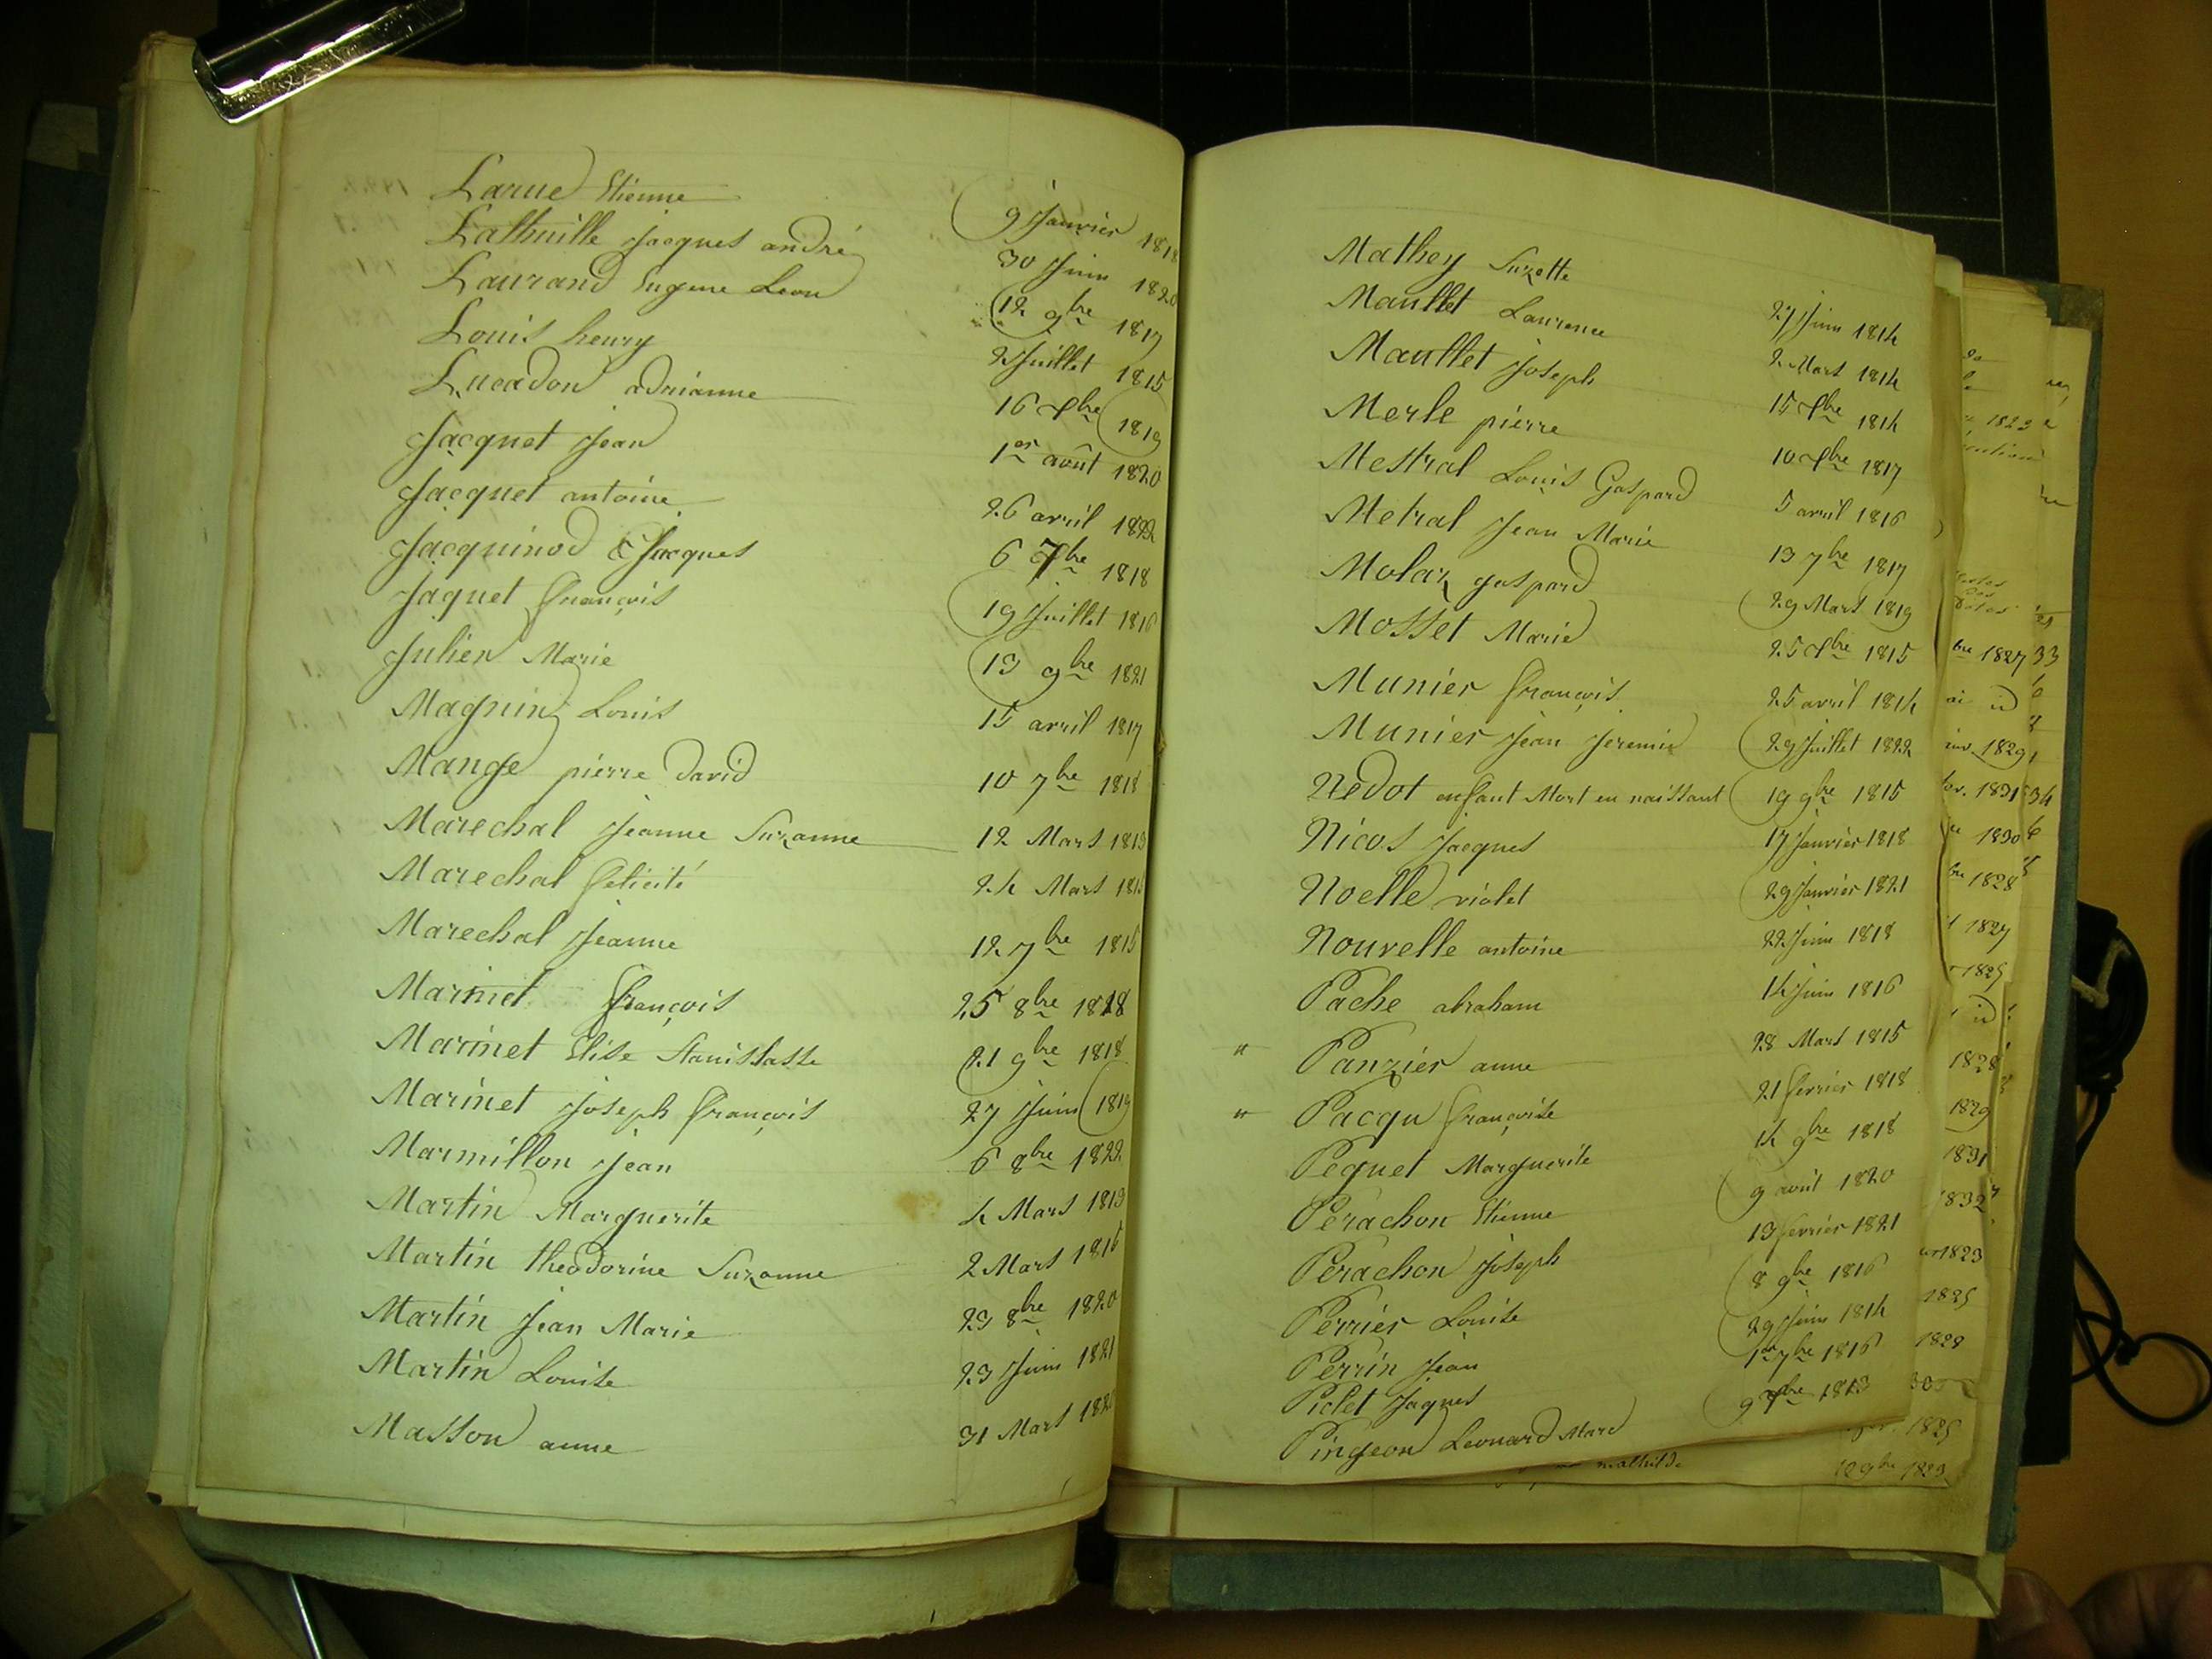 Larue Etienne 9 Janvier 1818
Lathuille Jacques andré 30 Juin 1820
Laurand Eugene Leon 12 9bre 1817
Louis henry 2 Juillet 1815
Lucadou adrianne 16 Xbre 1819
Jacquet Jean 1er août 1820
Jacquet antoine 26 avril 1822
Jacquinod Jacques 6 7bre 1818
Jaquet François 19 Juillet 1816
Julien Marie 13 9bre 1821
Magnin Louis 15 avril 1817
Mange pierre David 10 7bre 1818
Marechal Jeanne Suzanne 12 Mars 1813
Marechal Felicité 24 Mars
Marechal Jeanne 12 7bre 1815
Marinet François 25 8bre 1818
Marinet Elise Stanislasse 21 9bre 1818
Marinet Joseph François 27 Juin 1819
Marmillon Jean 6 8bre 1822
Martin Marguerite 4 Mars 1813
Martin theodorine Suzanne 2 Mars 1816
Martin Jean Marie 23 8bre 1820
Martin Louise 23 Juin 1821
Masson anne 31 Mars
Mathey Suzette 27 Juin 1814
Maullet Laurence 2 Mars 1814
Maullet Joseph 15 Xbre 1814
Merle pierre 10 Xbre 1817
Mestral Louis Gaspard 5 avril 1816
Metral Jean Marie 13 7bre 1817
Molaz gaspard 29 Mars 1819
Mosset Marie 25 Xbre 1815
Munier François 25 avril 1814
Munier Jean Jeremie 29 Juillet 1822
Nedot enfant Mort en naissant 19 9bre 1815
Nicos Jacques 17 Janvier 1818
Noelle violet 29 Janvier 1821
Nouvelle antoine 22 Juin 1818
Pache abraham 14 Juin 1816
" Panzier anne 28 Mars 1815
" Pacqu Françoise 21 fevrier 1818
Pequet Marguerite 14 9bre 1818
Perachon Etienne 9 avril 1820
Perachon Joseph 13 fevrier 1821
Perrier Louise 8 9bre 1816
Perrin Jean 29 Juin 1814
Piclet Jaques 1er 7bre 1816
Pingeon Leonard Marc 9 Xbre 1813
mathilde 12 9bre 1823